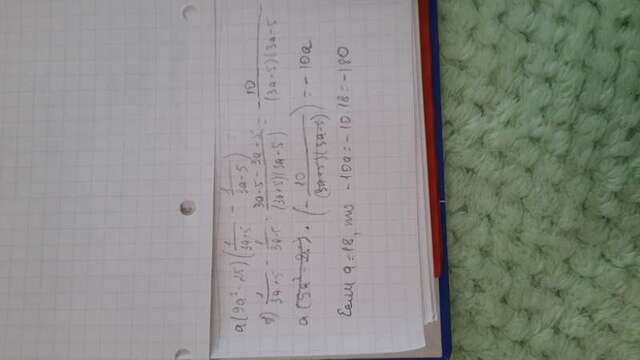 a(9a² - 25)(1/(3a+5) - 1/(3a-5))
1) 1/(3a+5) - 1/(3a-5) = (3a-5-3a-5)/((3a+5)(3a-5)) = -10/((3a+5)(3a-5
a(9a² - 25) · (-10/((3a+5)(3a-5))) = -10a
Если a=18, то -10a=-10·18=-180